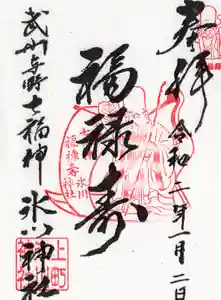 奉拝
令和二年一月二日
福禄寿
武州与野七福神
氷川神社
福禄寿
氷川
神社
上町